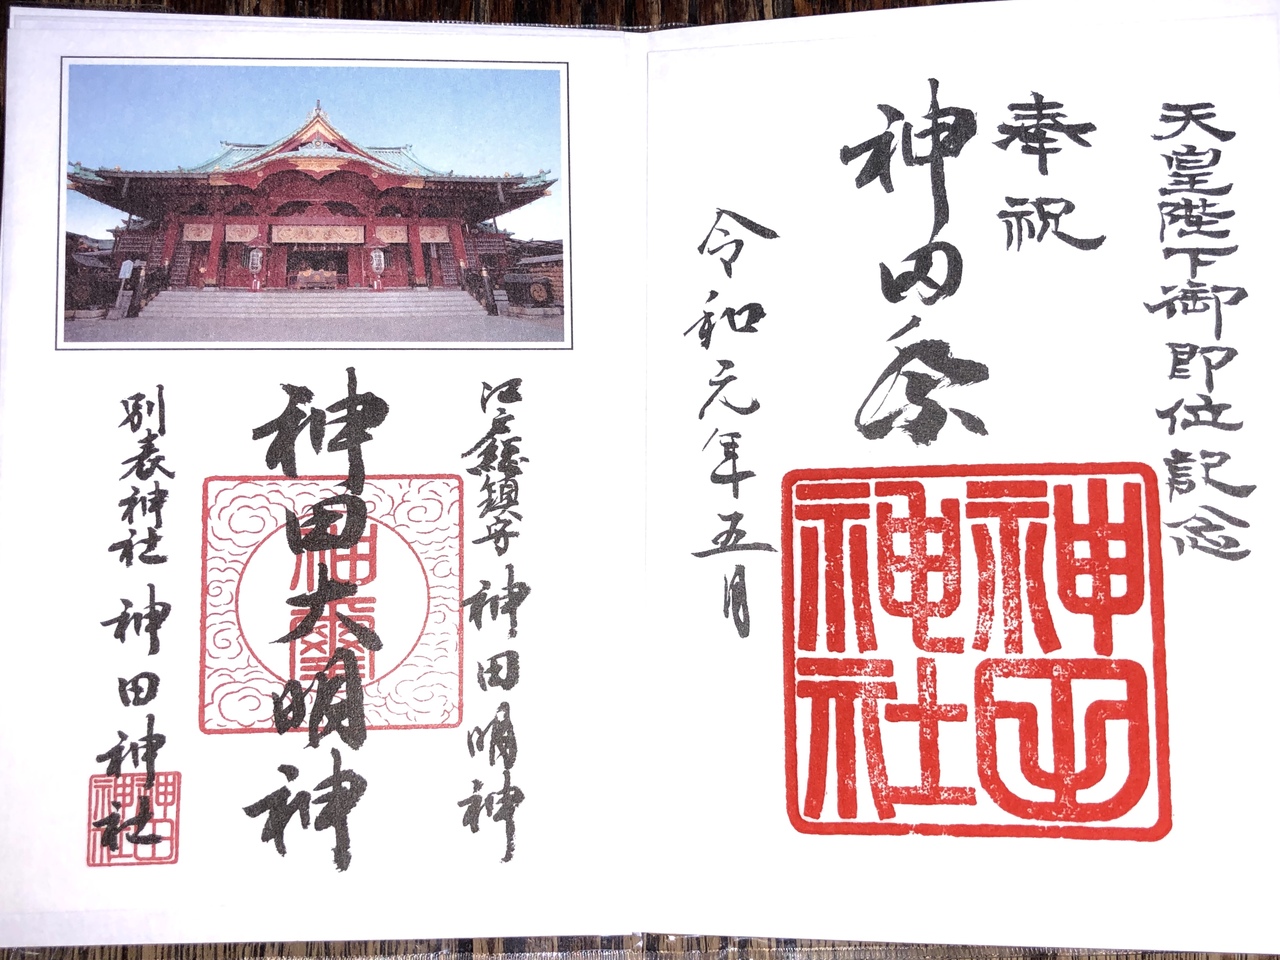 天皇陛下御即位記念
奉祝
神田祭
令和元年五月
神田神社
江戸總鎮守 神田明神
神田大明神
神璽
別表神社 神田神社
神田神社